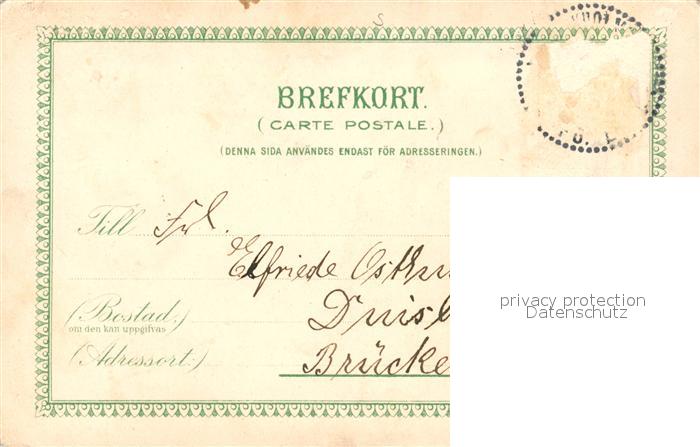 BREFKORT.
(CARTE POSTALE.)
(DENNA SIDA ANVÄNDES ENDAST FÖR ADRESSERINGEN.)
Till Frl.
Elfriede
(Bostad.)
om den kan uppgifvas
(Adressort:) Brücke
privacy protection
Datenschutz